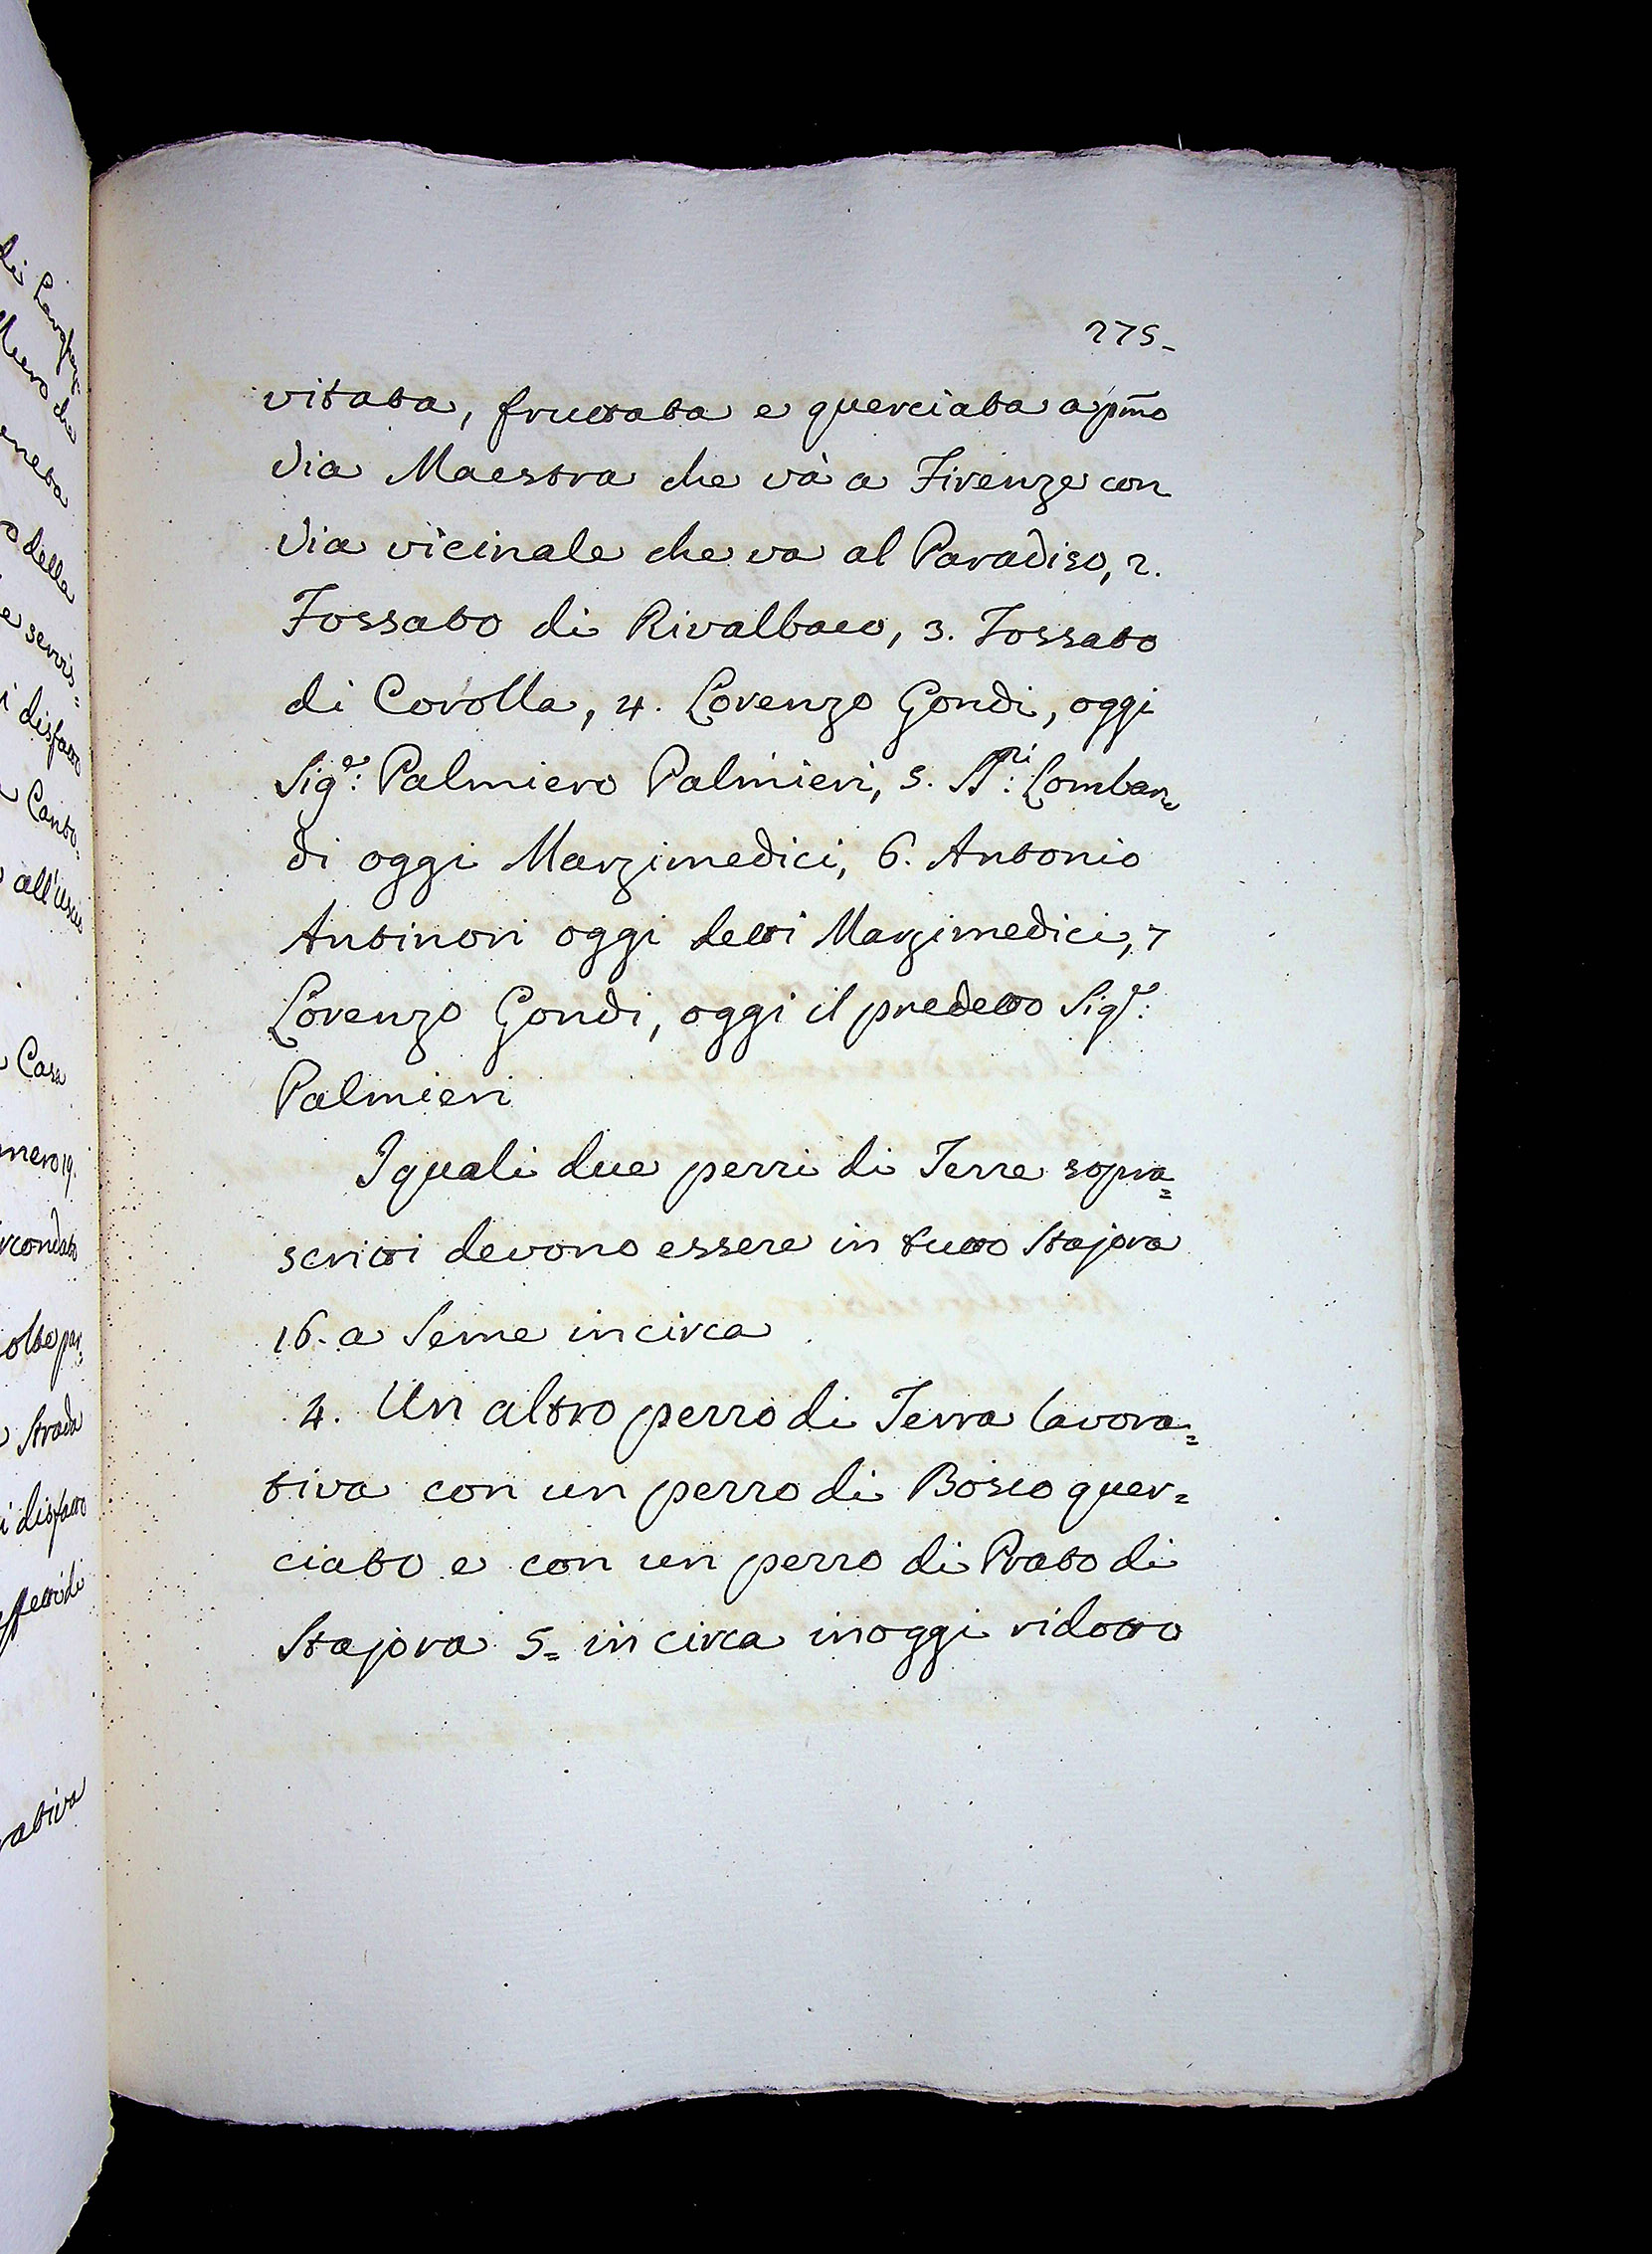 275.
vitata, fruttata e querciata a pm̃o
Via Maestra che và a Firenze con
Via vicinale che va al Paradiso, 2.
Fossato di Rivalbaco, 3. Fossato
di Corolla, 4. Lorenzo Gondi, oggi
Sigᵉ: Palmiero Palmieri, 5. SSʳⁱ: Lombar=
di oggi Marzimedici, 6. Antonio
Antinori oggi detti Marzimedici, 7
Lorenzo Gondi, oggi il predetto Sigᵉ:
Palmieri
I quali due pezzi di Terre sopra=
scritti devono essere in tutto Stajora
16. a Seme incirca
4. Un altro pezzo di Terra lavora=
tiva con un pezzo di Bosco quer=
ciato e con un pezzo di Prato di
Stajora 5= in circa in oggi ridotto
della
Canto=
all'Uscio
Casa
Strada